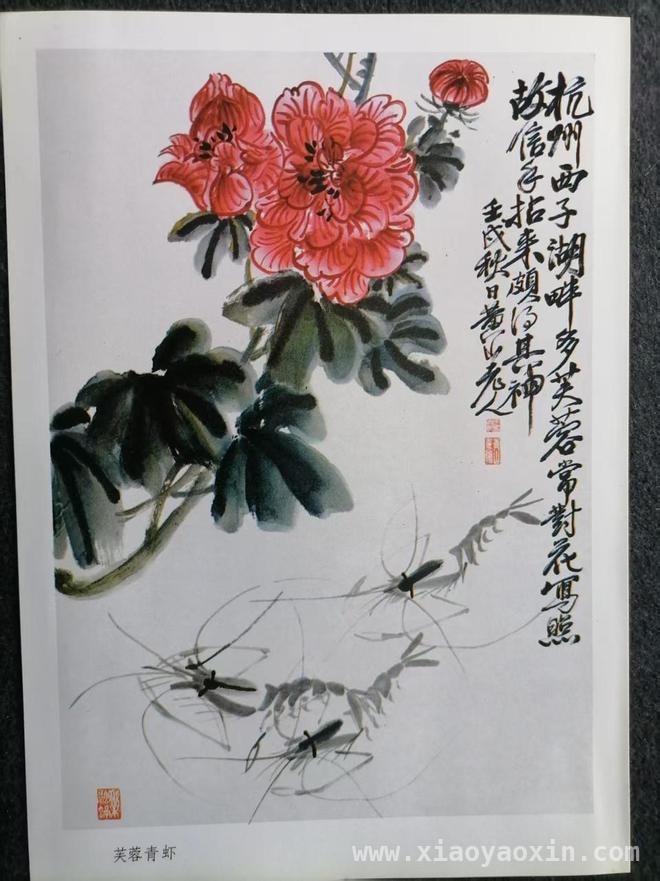 杭州西子湖畔多芙蓉常對花寫照
故信手拈来頗得其神
壬戌秋日黄山老人
芙蓉青虾
www.xiaoyaoxin.com